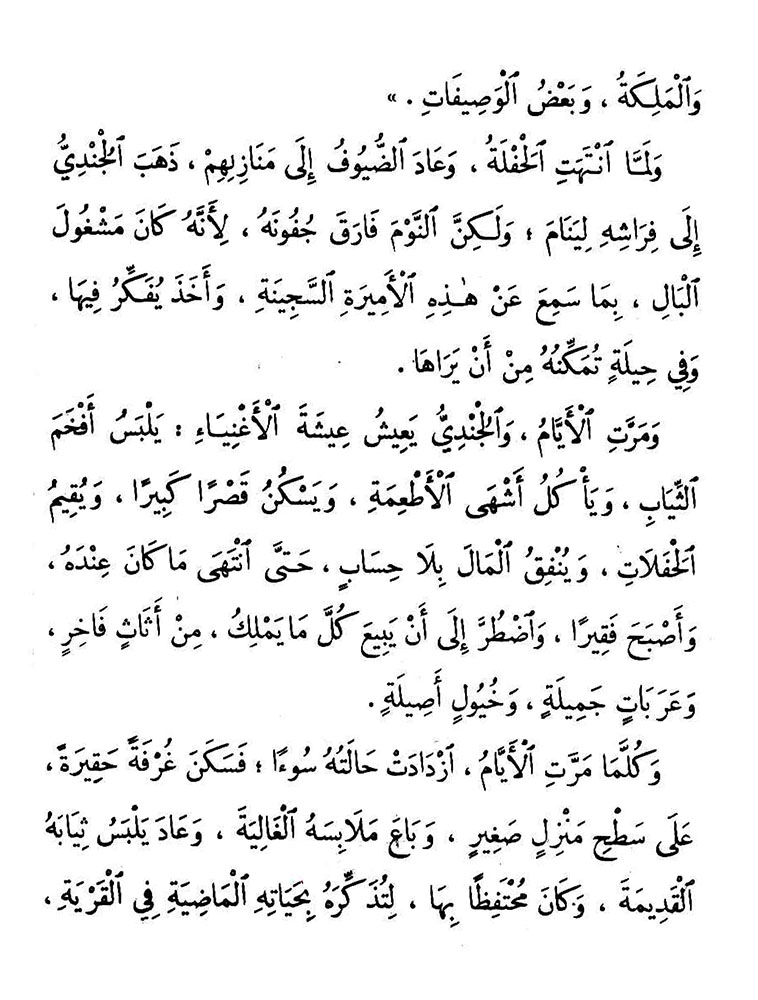 وَٱلْمَلِكَةُ ، وَبَعْضُ ٱلْوَصِيفَاتِ . »
وَلَمَّا ٱنْتَهَتِ ٱلْحَفْلَةُ ، وَعَادَ ٱلضُّيُوفُ إِلَى مَنَازِلِهِمْ ، ذَهَبَ ٱلْجُنْدِيُّ
إِلَى فِرَاشِهِ لِيَنَامَ ؛ وَلَـكِنَّ ٱلنَّوْمَ فَارَقَ جُفُونَهُ ، لِأَنَّهُ كَانَ مَشْغُولَ
ٱلْبَالِ ، بِمَا سَمِعَ عَنْ هٰـذِهِ ٱلْأَمِيرَةِ ٱلسَّجِينَةِ ، وَأَخَذَ يُفَكِّرُ فِيهَا ،
وَفِي حِيلَةٍ تُمَكِّنُهُ مِنْ أَنْ يَرَاهَا .
وَمَرَّتِ ٱلْأَيَّامُ ، وَٱلْجُنْدِيُّ يَعِيشُ عِيشَةَ ٱلْأَغْنِيَـاءِ : يَلْبَسُ أَفْخَمَ
ٱلثِّيَابِ ، وَيَأْكُلُ أَشْهَى ٱلْأَطْعِمَةِ ، وَيَسْكُنُ قَصْرًا كَبِيرًا ، وَيُقِيمُ
ٱلْحَفَلَاتِ ، وَيُنْفِقُ ٱلْمَالَ بِلَا حِسَابٍ ، حَـتَّى ٱنْتَهَى مَا كَانَ عِنْدَهُ ،
وَأَصْبَحَ فَقِيرًا ، وَٱضْطُرَّ إِلَى أَنْ يَبِيعَ كُلَّ مَا يَمْلِكُ ، مِنْ أَثَاثٍ فَاخِرٍ ،
وَعَرَبَاتٍ جَمِيلَةٍ ، وَخُيُولٍ أَصِيلَةٍ .
وَكُلَّمَا مَرَّتِ ٱلْأَيَّامُ ، ٱزْدَادَتْ حَالَتُهُ سُوءًا ؛ فَسَكَنَ غُرْفَةً حَقِيرَةً ،
عَلَى سَطْحِ مَنْزِلٍ صَغِيرٍ ، وَبَاعَ مَلَابِسَهُ ٱلْغَالِيَةَ ، وَعَادَ يَلْبَسُ ثِيَابَهُ
ٱلْقَدِيمَةَ ، وَكَانَ مُحْتَفِظًا بِهَا ، لِتُذَكِّرَهُ بِحَيَاتِهِ ٱلْمَاضِيَةِ فِي ٱلْقَرْيَةِ ،